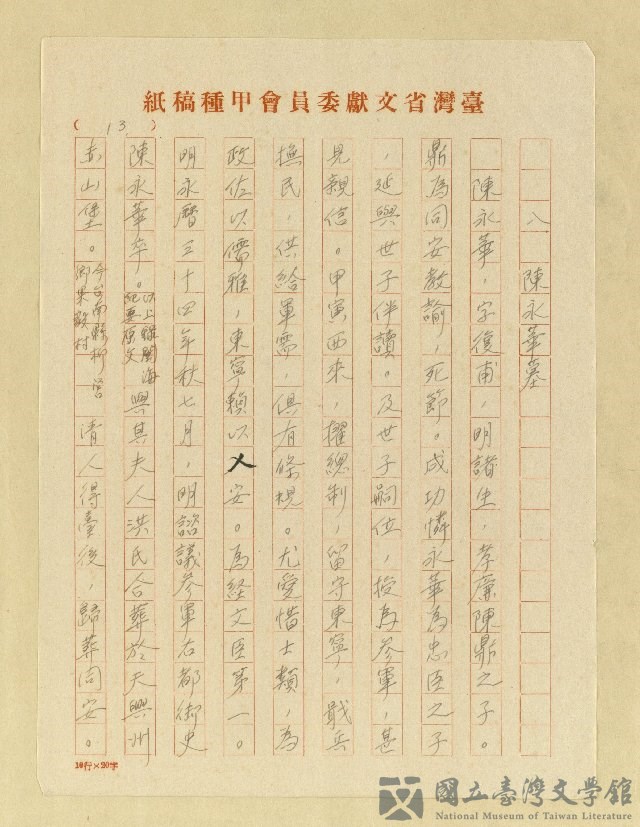 臺灣省文獻委員會甲種稿紙
(13)
八　陳永華墓
陳永華，字復甫，明諸生，孝廉陳鼎之子。
鼎為同安教諭，死節。成功憐永華為忠臣之子
，延與世子伴讀。及世子嗣位，授為參軍，甚
見親信。甲寅西來，擢總制，留守東寧，戢兵
撫民，供給軍需，俱有條規。尤愛惜士類，為
政佐以儒雅，東寧賴以乂安。為経文臣第一。
明永曆三十四年秋七月，明諮議參軍右都御史
陳永華卒。以上錄閩海紀要原文與其夫人洪氏合葬於天興州
赤山堡。今台南縣柳營鄉果毅村清人得臺後，歸葬同安。
10行×20字
國立臺灣文學館
National Museum of Taiwan Literature